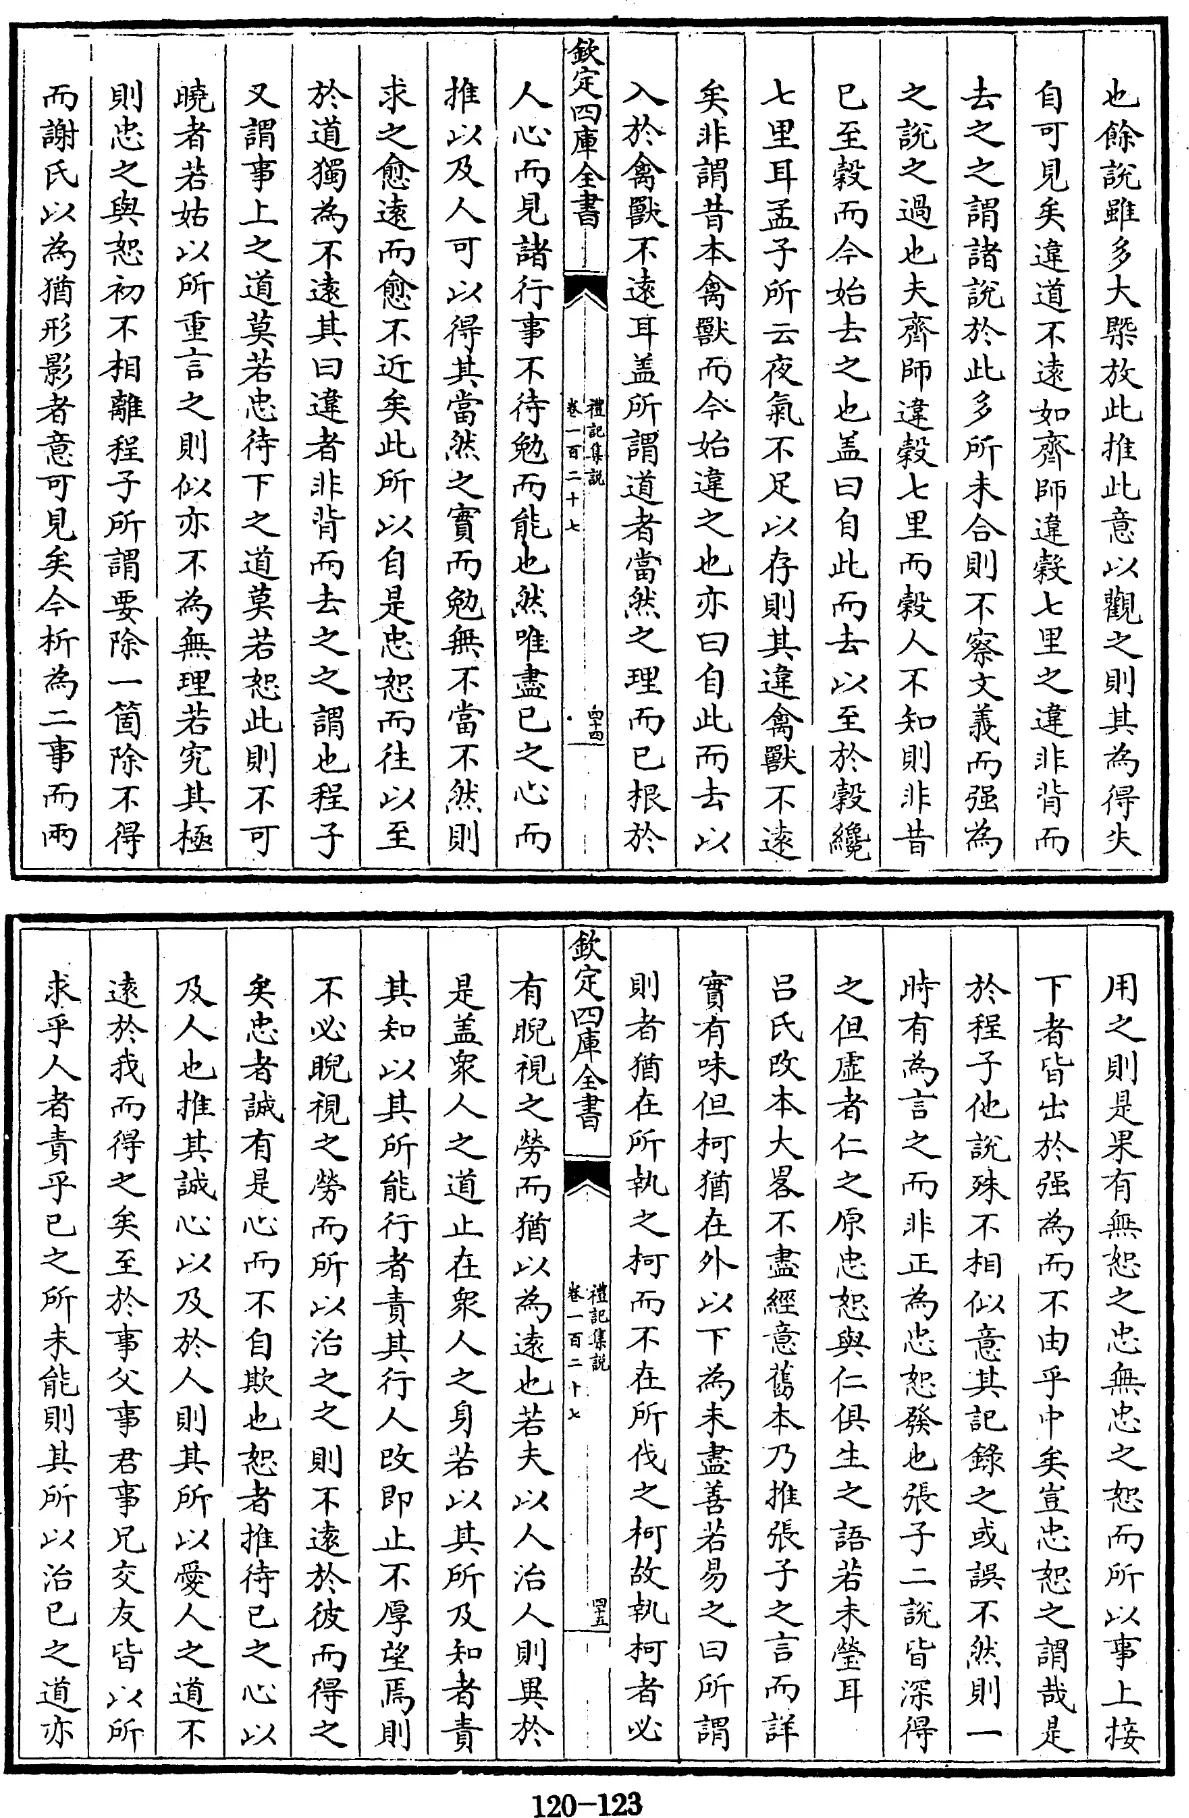 也餘說雖多大槩放此推此意以觀之則其為得失
自可見矣違道不遠如齊師違穀七里之違非背而
去之之謂諸說於此多所未合則不察文義而强為
之說之過也夫齊師違穀七里而穀人不知則非昔
已至穀而今始去之也盖曰自此而去以至於穀纔
七里耳孟子所云夜氣不足以存則其違禽獸不遠
矣非謂昔本禽獸而今始違之也亦曰自此而去以
入於禽獸不遠耳盖所謂道者當然之理而已根於
欽定四庫全書
禮記集說
卷一百二十七
四十四
人心而見諸行事不待勉而能也然唯盡已之心而
推以及人可以得其當然之實而勉無不當不然則
求之愈遠而愈不近矣此所以自是忠恕而往以至
於道獨為不遠其曰違者非背而去之之謂也程子
又謂事上之道莫若忠待下之道莫若恕此則不可
曉者若姑以所重言之則似亦不為無理若究其極
則忠之與恕初不相離程子所謂要除一箇除不得
而謝氏以為猶形影者意可見矣今析為二事而兩
用之則是果有無恕之忠無忠之恕而所以事上接
下者皆出於强為而不由乎中矣豈忠恕之謂哉是
於程子他說殊不相似意其記錄之或誤不然則一
時有為言之而非正為忠恕發也張子二說皆深得
之但虛者仁之原忠恕與仁俱生之語若未瑩耳
呂氏改本大畧不盡經意舊本乃推張子之言而詳
實有味但柯猶在外以下為未盡善若易之曰所謂
則者猶在所執之柯而不在所伐之柯故執柯者必
欽定四庫全書
禮記集說
卷一百二十七
四十五
有睨視之勞而猶以為遠也若夫以人治人則異於
是盖衆人之道止在衆人之身若以其所及知者責
其知以其所能行者責其行人改即止不厚望焉則
不必睨視之勞而所以治之之則不遠於彼而得之
矣忠者誠有是心而不自欺也恕者推待已之心以
及人也推其誠心以及於人則其所以愛人之道不
遠於我而得之矣至於事父事君事兄交友皆以所
求乎人者責乎已之所未能則其所以治已之道亦
120-123